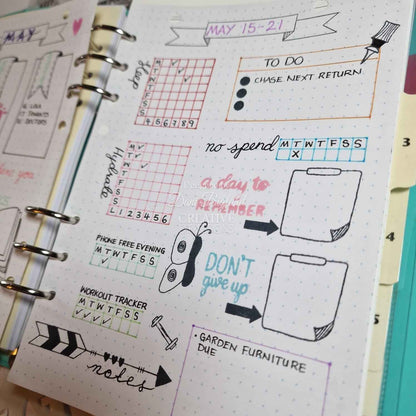 MAY
MAY 15-21
Sleep
M
T
W
T
F
S
S
4 5 6 7 8 9
TO DO
CHASE NEXT RETURN
no spend
M T W T F S S
X
Hydrate
M
T
W
T
F
S
S
L 1 2 3 4 5 6
a day to
REMEMBER
CREATIVE
PHONE FREE EVENING
M T W T F S S
DON'T
give up
WORKOUT TRACKER
M T W T F S S
notes
GARDEN FURNITURE
DUE
3
4
5